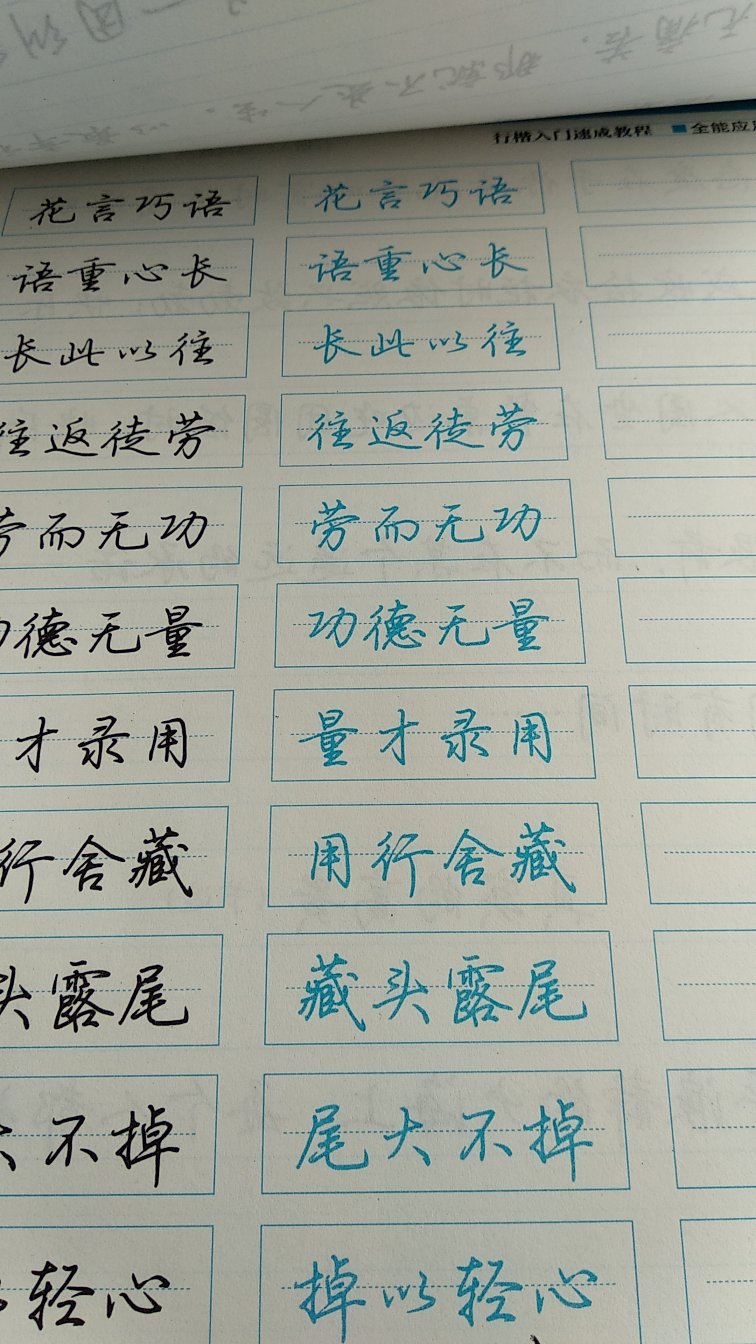 行楷入门速成教程 ■ 全能应
花言巧语 花言巧语
语重心长 语重心长
长此以往 长此以往
往返徒劳 往返徒劳
劳而无功 劳而无功
功德无量 功德无量
才录用 量才录用
行舍藏 用行舍藏
头露尾 藏头露尾
大不掉 尾大不掉
以轻心 掉以轻心